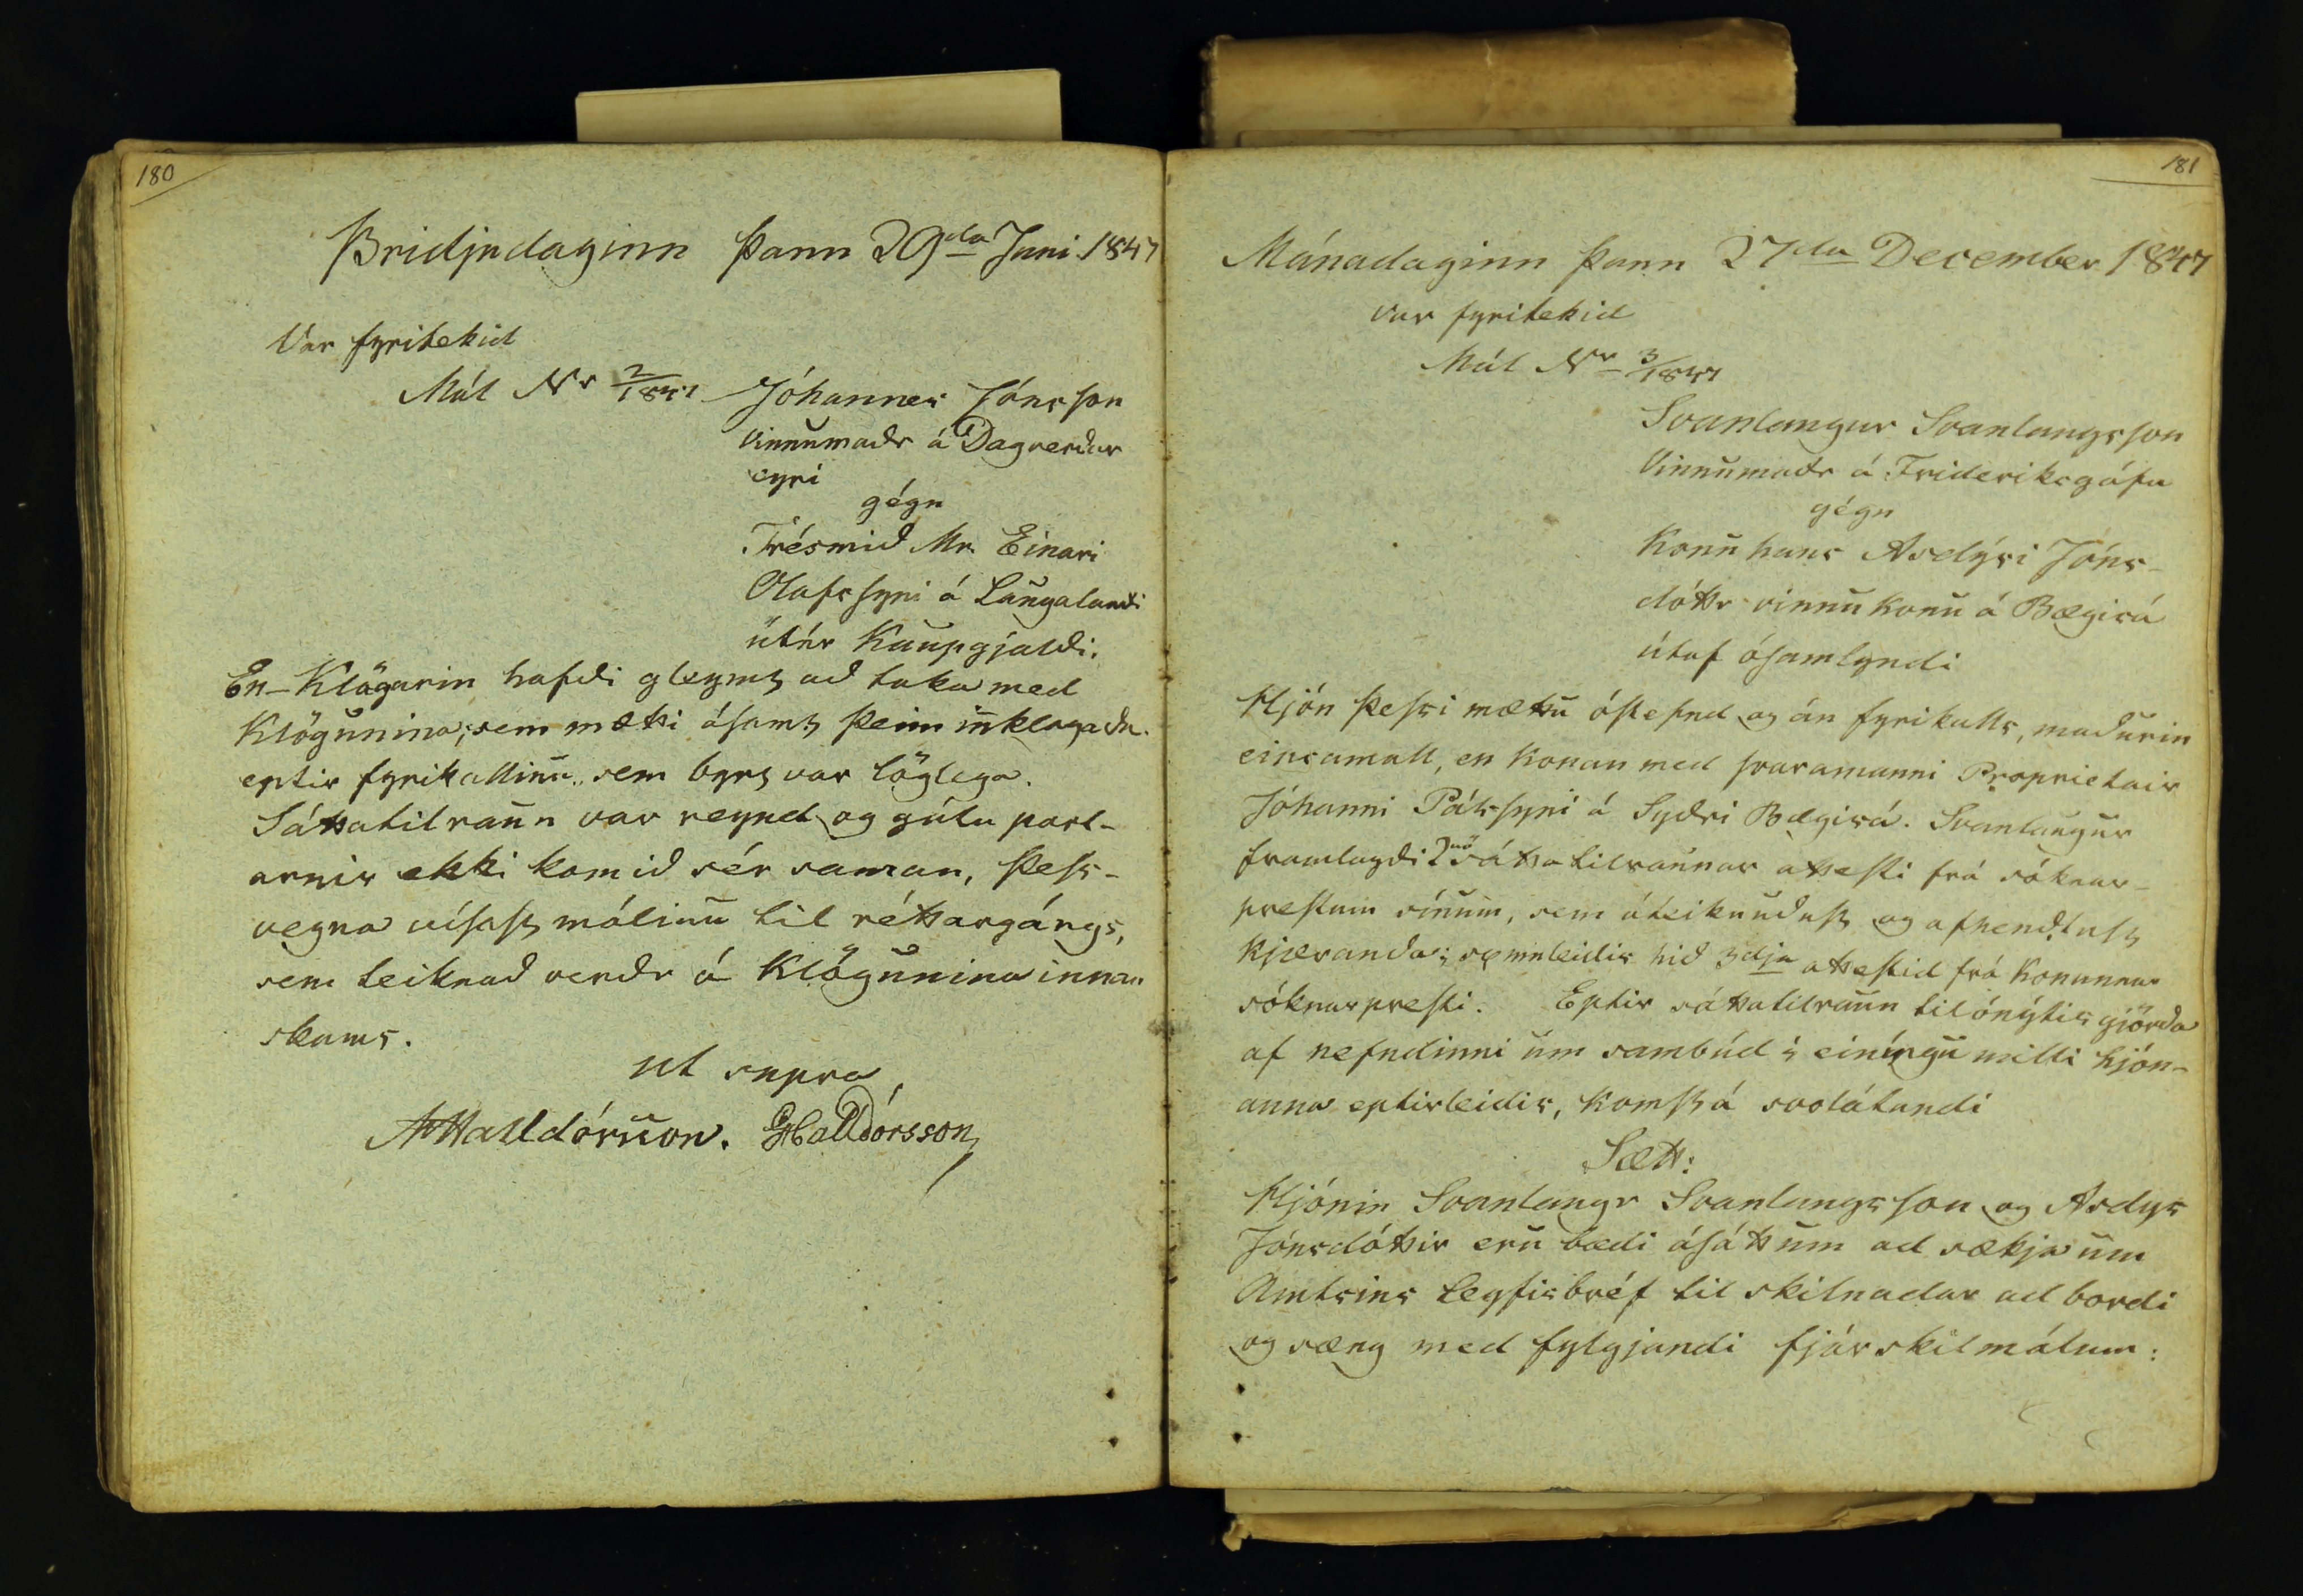 180
Þridjudaginn þann 29da Juni 1847
Var fyritekid
Mál Nr 2/1847 Jóhannes Jónsson
vinnumaðr á Dagverðar
eyri
gégn
Trésmið Mr. Einari
Olafssyni á Laugalandi
útúr Kaupgjaldi.
En Klögarin hafði gleymt að taka með
Klögunina, sem mætti ásamt þeim innklagaða
eptir fyrikallinu sem byrt var löglega.
Sáttatilraun var reynd og gátu part-
arnir ekki komið sér saman, þess-
vegna vísast málinu til réttargángs,
sem teiknað verðr á Klögunina innan
skams.
ut supra
AHalldórsson. GHalldórsson
181
Mánadaginn þann 27da December 1847
var fyritekid
Mál Nr 3/1847
Svanlaugur Svanlaugsson
Vinnumaðr á Frideriksgáfu
gégn
Konu hans Asdýsi Jóns-
dóttr vinnukonu á Bægisá
útaf ósamlyndi
Hjón þessi mættu óstefnd og án fyrikalls, maðurin
einsamall, en Konan med svaramanni Proprietair
Jóhanni Pálssyni á Syðri Bægisá. Svanlaugur
framlagði 2nö sáttatilraunar attesti frá sóknar-
prestum sínum, sem áteiknuðust og afhendtust
Kjæranda; sömuleidis hið 3dja attestid frá Konunnar
sóknarpresti. Eptir sáttatilraun til ónýtis gjörða
af nefndinni um sambúd í einíngu milli hjón-
anna eptirleidis, komst á svolátandi
Sætt:
Hjónin Svanlaugr Svanlaugsson og Asdys
Jónsdóttir eru bædi ásátt um ad sækja um
Amtsins Leyfisbréf til skilnadar ad bordi
og sæng med fylgjandi fjárskilmálum: